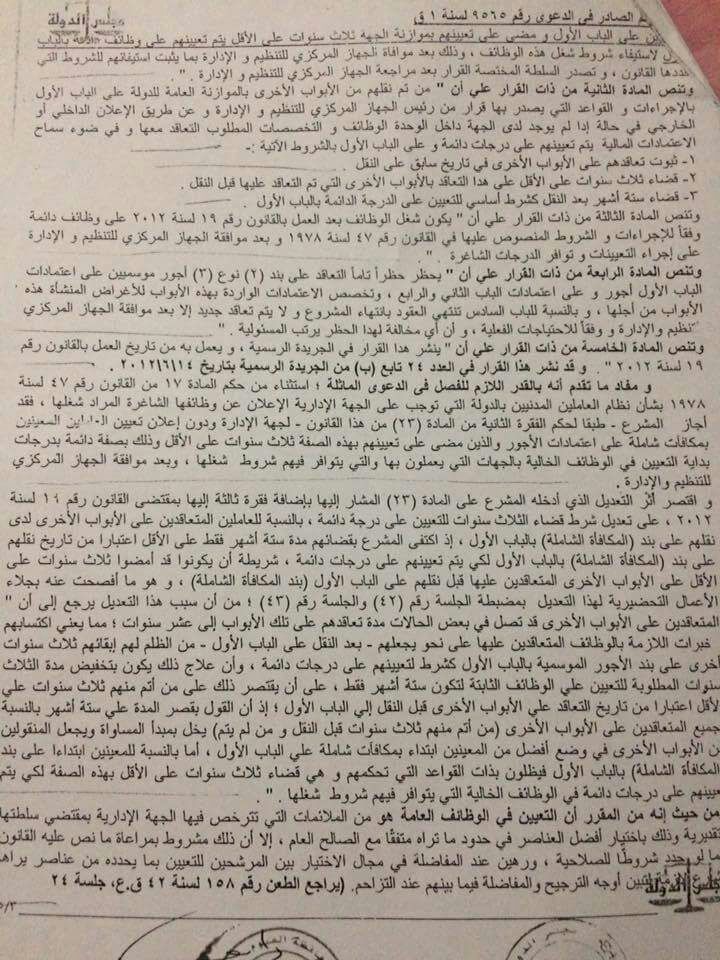 مجلس الدولة
الصادر في الدعوى رقم ٩٥٦٥ لسنة ١ ق
على الباب الأول و مضى على تعيينهم بموازنة الجهة ثلاث سنوات على الأقل يتم تعيينهم على وظائف بالباب
لاستيفاء شروط شغل هذه الوظائف ، وذلك بعد موافاة الجهاز المركزي للتنظيم و الإدارة بما يثبت استيفائهم للشروط التي
القانون ، و تصدر السلطة المختصة القرار بعد مراجعة الجهاز المركزي للتنظيم و الإدارة . " .
وتنص المادة الثانية من ذات القرار علي أن " من تم نقلهم من الأبواب الأخرى بالموازنة العامة للدولة على الباب الأول
بالإجراءات و القواعد التي يصدر بها قرار من رئيس الجهاز المركزي للتنظيم و الإدارة و عن طريق الإعلان الداخلي أو
الخارجي في حالة إذا لم يوجد لدى الجهة داخل الوحدة الوظائف و التخصصات المطلوب التعاقد معها و في ضوء سماح
الاعتمادات المالية يتم تعيينهم على درجات دائمة و على الباب الأول بالشروط الآتية :-
١- ثبوت تعاقدهم على الأبواب الأخرى في تاريخ سابق على النقل .
٢- قضاء ثلاث سنوات على الأقل على هذا التعاقد بالأبواب الأخرى التي تم التعاقد عليها قبل النقل .
٣- قضاء ستة أشهر بعد النقل كشرط أساسي للتعيين على الدرجة الدائمة بالباب الأول .
وتنص المادة الثالثة من ذات القرار علي أن " يكون شغل الوظائف بعد العمل بالقانون رقم ١٩ لسنة ٢٠١٢ على وظائف دائمة
وفقاً للإجراءات و الشروط المنصوص عليها في القانون رقم ٤٧ لسنة ١٩٧٨ و بعد موافقة الجهاز المركزي للتنظيم و الإدارة
على إجراء التعيينات و توافر الدرجات الشاغرة . " .
وتنص المادة الرابعة من ذات القرار علي أن " يحظر حظراً تاماً التعاقد على بند (٢) نوع (٣) أجور موسميين على اعتمادات
الباب الأول أجور و على اعتمادات الباب الثاني والرابع ، وتخصص الاعتمادات الواردة بهذه الأبواب للأغراض المنشأة هذه
الأبواب من أجلها ، و بالنسبة للباب السادس تنتهي العقود بانتهاء المشروع و لا يتم تعاقد جديد إلا بعد موافقة الجهاز المركزي
للتنظيم و الإدارة و وفقاً للاحتياجات الفعلية ، و أن أي مخالفة لهذا الحظر يرتب المسئولية . "
وتنص المادة الخامسة من ذات القرار علي أن " ينشر هذا القرار في الجريدة الرسمية ، و يعمل به من تاريخ العمل بالقانون رقم
١٩ لسنة ٢٠١٢ " . و قد نشر هذا القرار في العدد ٢٤ تابع (ب) من الجريدة الرسمية بتاريخ ٢٠١٢/٦/١٤ .
و مفاد ما تقدم أنه بالقدر اللازم للفصل في الدعوى الماثلة ؛ استثناء من حكم المادة ١٧ من القانون رقم ٤٧ لسنة
١٩٧٨ بشأن نظام العاملين المدنيين بالدولة التي توجب على الجهة الإدارية الإعلان عن وظائفها الشاغرة المراد شغلها ، فقد
أجاز المشرع - طبقا لحكم الفقرة الثانية من المادة (٢٣) من هذا القانون - لجهة الإدارة ودون إعلان تعيين العاملين المعينين
بمكافآت شاملة على اعتمادات الأجور والذين مضى على تعيينهم بهذه الصفة ثلاث سنوات على الأقل وذلك بصفة دائمة بدرجات
بداية التعيين في الوظائف الخالية بالجهات التي يعملون بها والتي يتوافر فيهم شروط شغلها ، وبعد موافقة الجهاز المركزي
للتنظيم والإدارة .
و اقتصر أثر التعديل الذي أدخله المشرع على المادة (٢٣) المشار إليها بإضافة فقرة ثالثة إليها بمقتضى القانون رقم ١٩ لسنة
٢٠١٢ ، على تعديل شرط قضاء الثلاث سنوات للتعيين على درجة دائمة ، بالنسبة للعاملين المتعاقدين على الأبواب الأخرى لدى
نقلهم على بند (المكافأة الشاملة) بالباب الأول ، إذ اكتفى المشرع بقضائهم مدة ستة أشهر فقط على الأقل اعتبارا من تاريخ نقلهم
على بند (المكافأة الشاملة) بالباب الأول لكي يتم تعيينهم على درجات دائمة ، شريطة أن يكونوا قد أمضوا ثلاث سنوات على
الأقل على الأبواب الأخرى المتعاقدين عليها قبل نقلهم على الباب الأول (بند المكافأة الشاملة) ، و هو ما أفصحت عنه بجلاء
الأعمال التحضيرية لهذا التعديل بمضبطة الجلسة رقم (٤٢) والجلسة رقم (٤٣) ؛ من أن سبب هذا التعديل يرجع إلى أن "
المتعاقدين على الأبواب الأخرى قد تصل في بعض الحالات مدة تعاقدهم على تلك الأبواب إلى عشر سنوات ؛ مما يعني اكتسابهم
خبرات اللازمة بالوظائف المتعاقدين عليها على نحو يجعلهم - بعد النقل على الباب الأول - من الظلم لهم إبقائهم ثلاث سنوات
أخرى على بند الأجور الموسمية بالباب الأول كشرط لتعيينهم على درجات دائمة ، وأن علاج ذلك يكون بتخفيض مدة الثلاث
سنوات المطلوبة للتعيين على الوظائف الثابتة لتكون ستة أشهر فقط ، على أن يقتصر ذلك على من أتم منهم ثلاث سنوات علي
الأقل اعتبارا من تاريخ التعاقد علي الأبواب الأخرى قبل النقل إلي الباب الأول ؛ إذ أن القول بقصر المدة علي ستة أشهر بالنسبة
جميع المتعاقدين على الأبواب الأخرى (من أتم منهم ثلاث سنوات قبل النقل و من لم يتم) يخل بمبدأ المساواة ويجعل المنقولين
من الأبواب الأخرى في وضع أفضل من المعينين ابتداء بمكافآت شاملة علي الباب الأول ، أما بالنسبة للمعينين ابتداءا على بند
(المكافأة الشاملة) بالباب الأول فيظلون بذات القواعد التي تحكمهم و هي قضاء ثلاث سنوات على الأقل بهذه الصفة لكي يتم
تعيينهم على درجات دائمة في الوظائف الخالية التي يتوافر فيهم شروط شغلها . " .
ومن حيث إنه من المقرر أن التعيين في الوظائف العامة هو من الملائمات التي تترخص فيها الجهة الإدارية بمقتضي سلطتها
تقديرية وذلك باختيار أفضل العناصر في حدود ما تراه متفقًا مع الصالح العام ، إلا أن ذلك مشروط بمراعاة ما نص عليه القانون
شروطًا للصلاحية ، ورهين عند المفاضلة في مجال الاختيار بين المرشحين للتعيين بما يحدده من عناصر يراها
لتبين أوجه الترجيح والمفاضلة فيما بينهم عند التزاحم. (يراجع الطعن رقم ١٥٨ لسنة ٤٢ ق.ع، جلسة ٢٤
مجلس الدولة